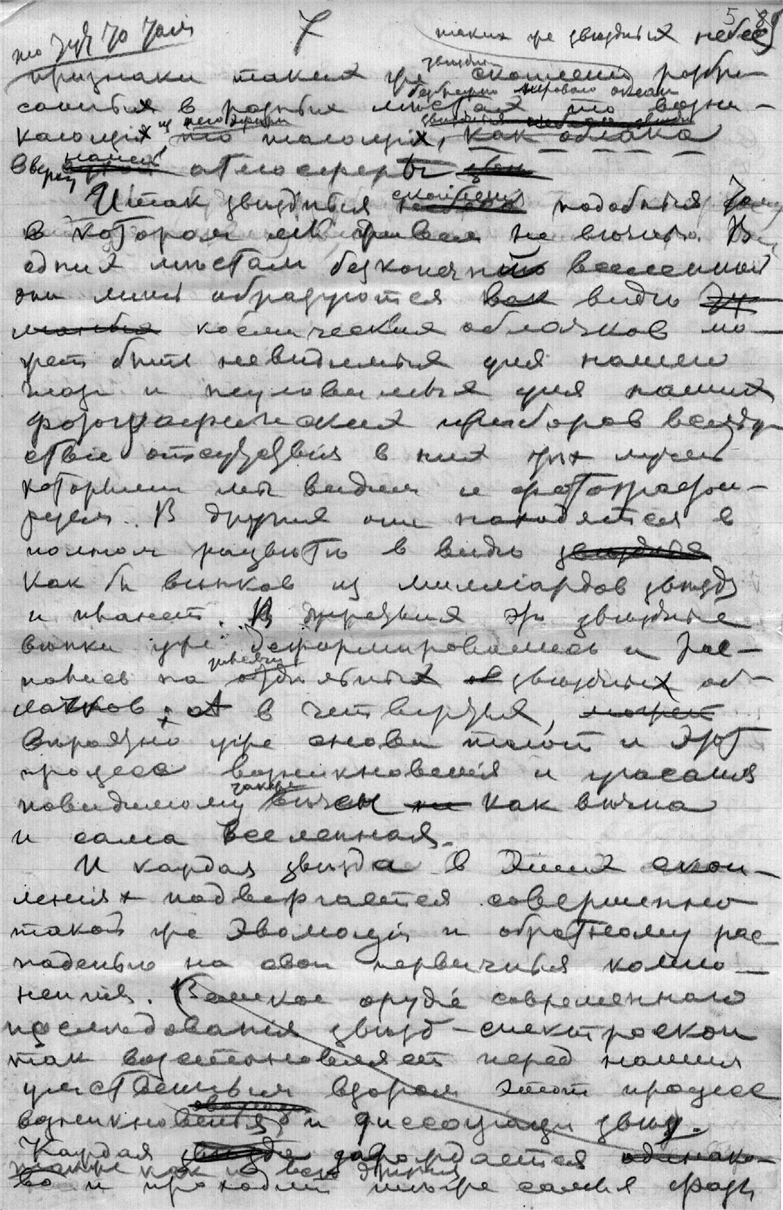 7
5 89
таких же звездных небес
признаки таких же звездных скоплений разбро-
санных в разных местах
безбрежно мирового океана
кающих, как облака
нашей атмосферы
Итак звездныя скопления подобныя
в котором мы живем не вечны. В
одних местах безконечной вселенной
они лишь образуются в виде
космических облачков мо-
жет быть невидимых для наших
глаз и неуловимых для наших
фотографических приборов вследс
ствие отсутствия в них тех лучей
которыми мы видим и фотографи-
руем. В других они находятся в
полном развитии в виде
как бы венков из миллиардов звезд
и планет. В третьих эти звездные
венки уже деформировались и рас-
пались на отдельных звездных об-
лачков; а в четвертых,
вероятно уже снова и этот
процесс возникновения и угасания
повидимому также вечен как вечна
и сама вселенная.
И каждая звезда в этих скоп-
лениях подвергается совершенно
такой же эволюции и обратному рас-
падению на свои первичныя компо-
ненты. Великое орудие современного
изследования звезд - спектроскоп
так возстановляет перед нашим
умственным взором этот процесс
возникновения и диссоциации звезд.
Каждая зарождается одинако-
во и проходит те же самыя фазы